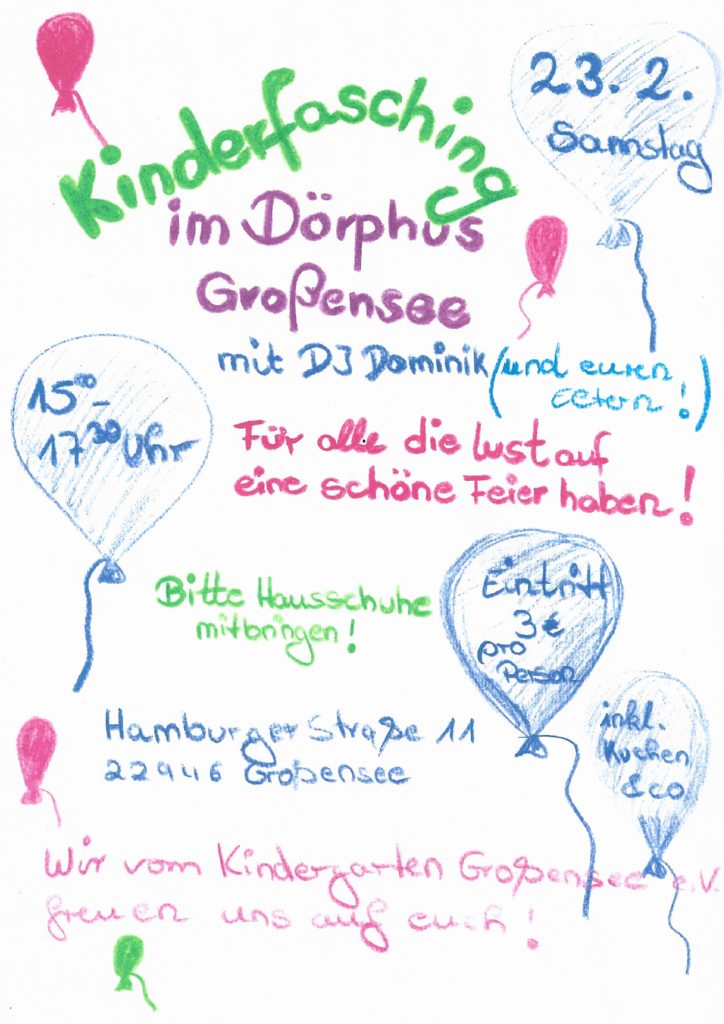 23. 2.
Samstag
Kinderfasching
im Dörphus
Großensee
mit DJ Dominik (und euren
Eltern!)
15⁰⁰ -
17³⁰ Uhr
Für alle die Lust auf
eine schöne Feier haben!
Bitte Hausschuhe
mitbringen!
Eintritt
3 €
pro
Person
inkl.
Kuchen
& co.
Hamburger Straße 11
22946 Großensee
Wir vom Kindergarten Großensee e.V.
freuen uns auf euch!